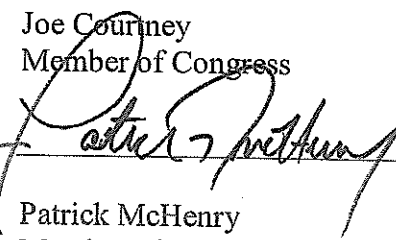 Joe Courtney
Member of Congress
Patrick McHenry
Patrick McHenry